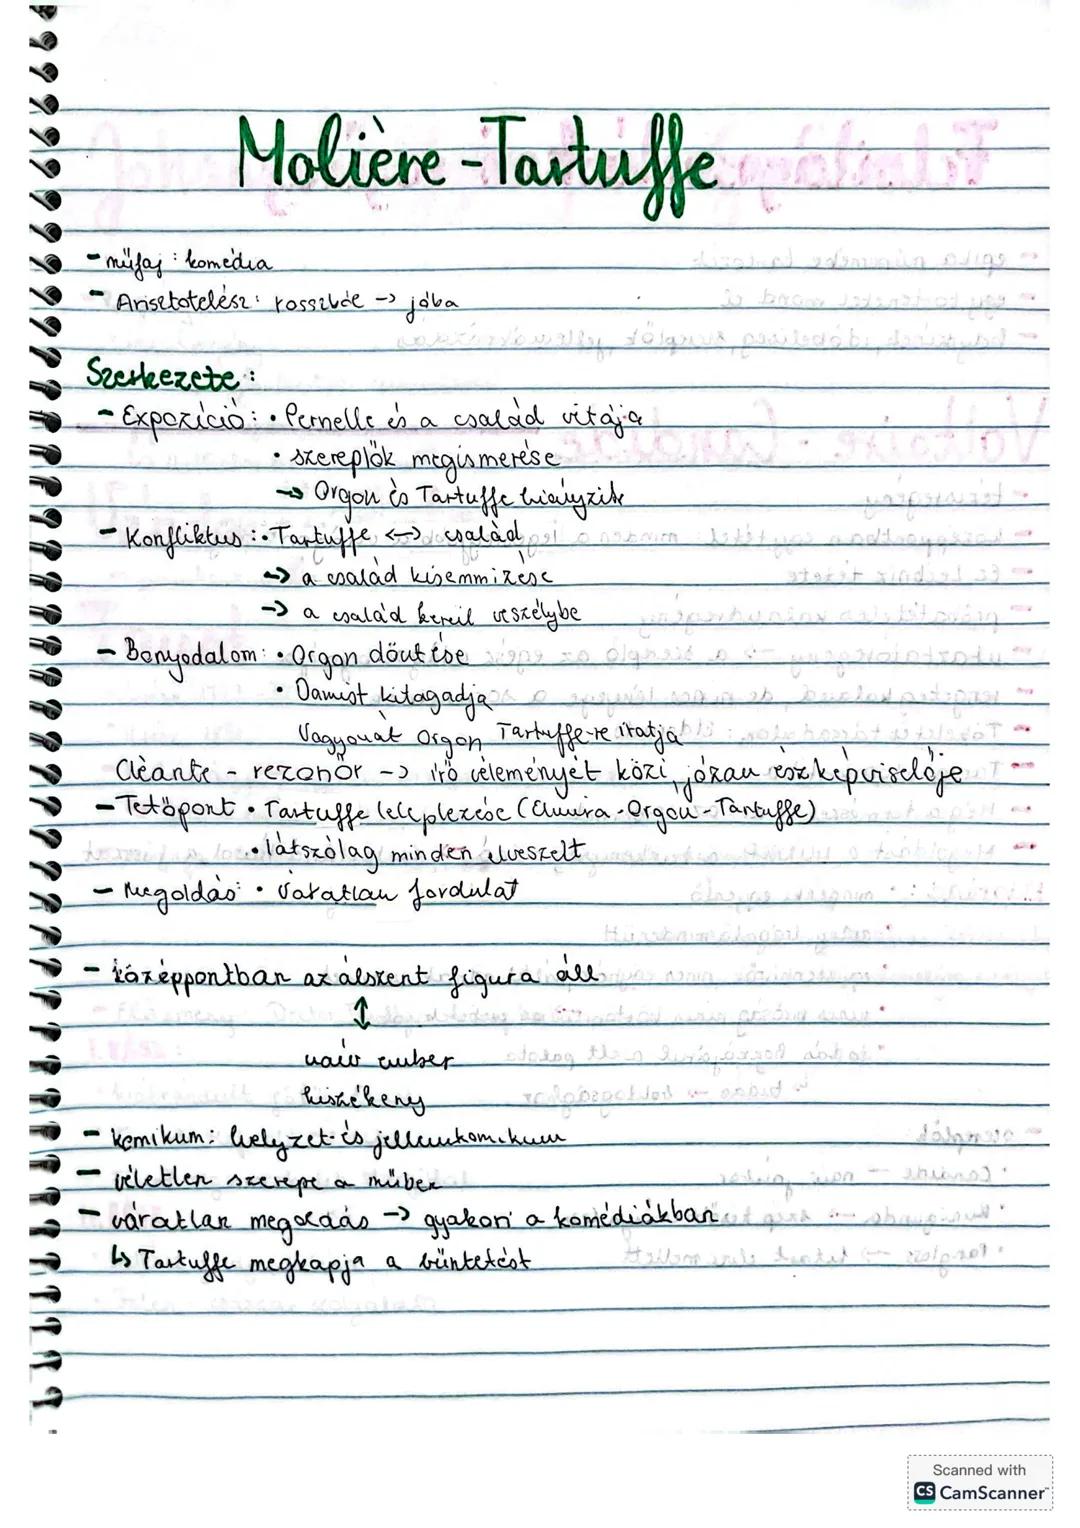 Molière - Tartuffe
- műfaj: komédia
- Arisztotelész: rosszból -> jóba
Szerkezete:
- Expozíció: • Pernelle és a család vitája
• szereplők megismerése
-> Orgon és Tartuffe hiányzik
- Konfliktus: • Tartuffe <-> család
-> a család kisemmizése
-> a család kerül veszélybe
- Bonyodalom: • Orgon döntése
• Damist kitagadja
Vagyonát Orgon Tartuffe-re íratja
Cléante - rezonőr -> író véleményét közli, józan ész képviselője
- Tetőpont • Tartuffe leleplezése (Elmira - Orgon - Tartuffe)
• látszólag minden elveszett
- Megoldás: • váratlan fordulat
- középpontban az álszent figura áll
↕
naiv ember
hiszékeny
- komikum: helyzet- és jellemkomikum
- véletlen szerepe a műben
- váratlan megoldás -> gyakori a komédiákban
↳ Tartuffe megkapja a büntetést
Scanned with
CS CamScanner